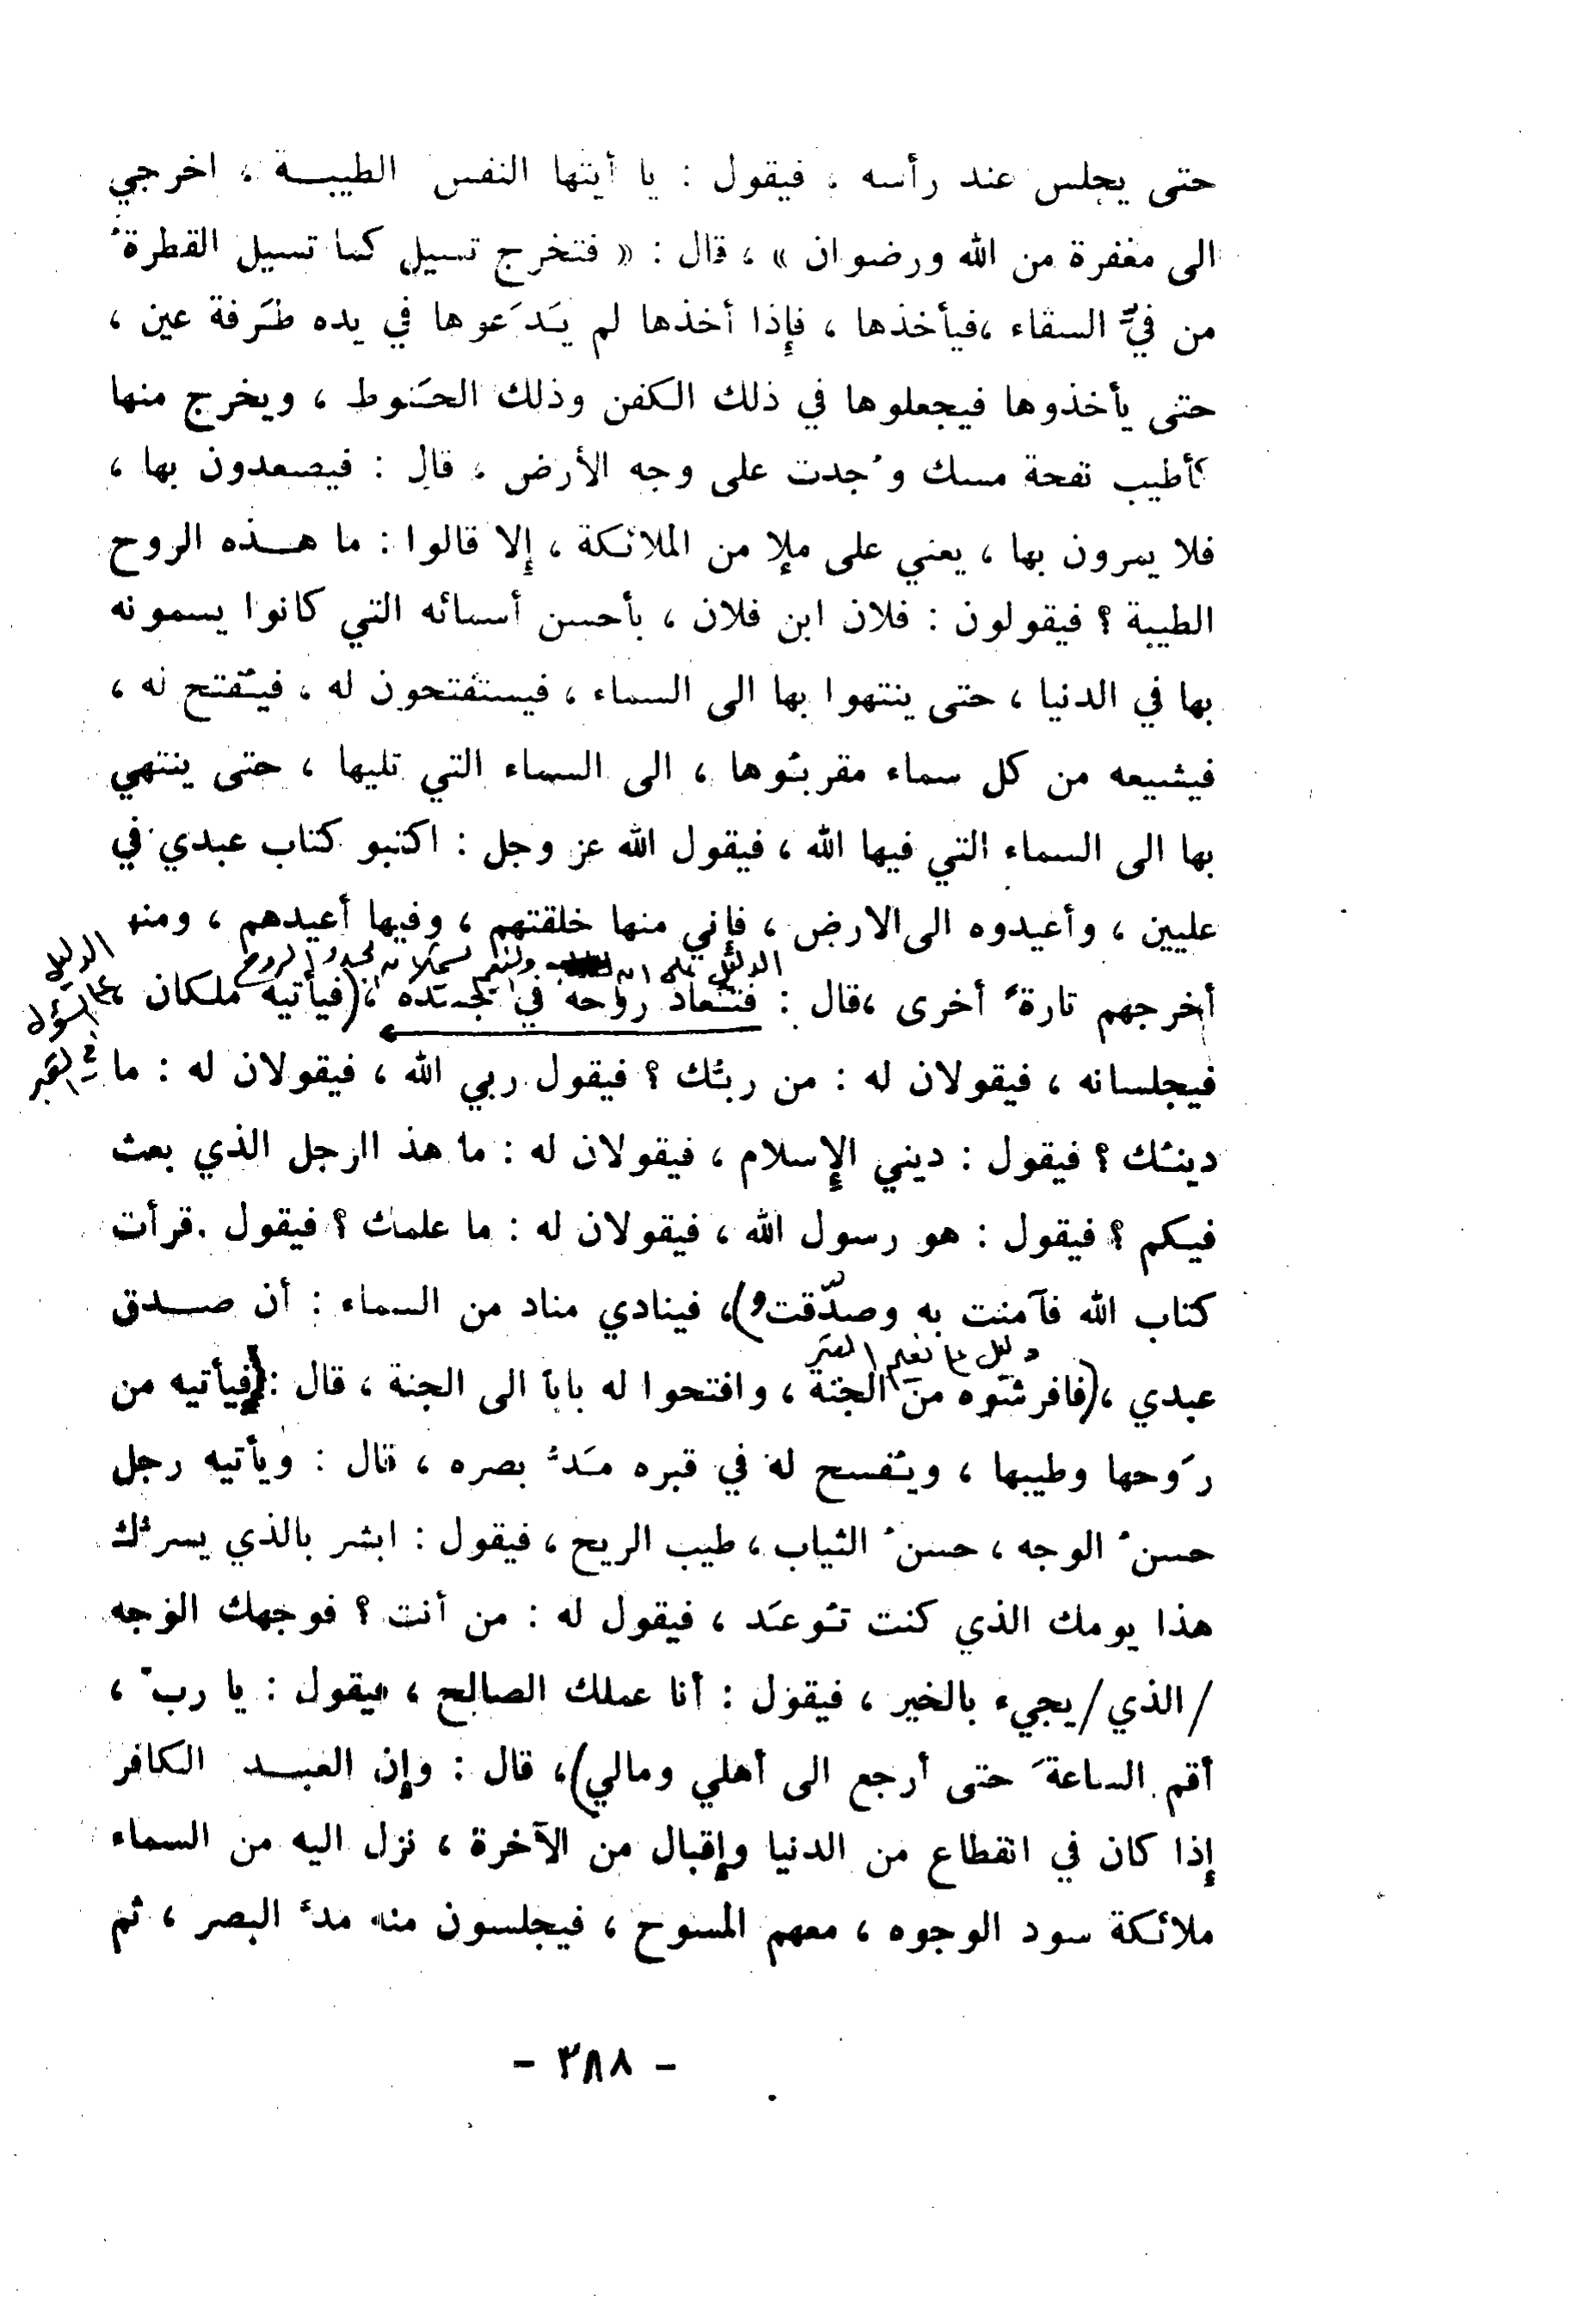 حتى يجلس عند رأسه ، فيقول : يا أيتها النفس الطيبـــة ، اخرجي
الى مغفرة من الله ورضوان » ، قال : « فتخرج تسيل كما تسيل القطرةُ
من فيِّ السقاء ،فيأخذها ، فإِذا أخذها لم يَدَعوها في يده طَرفة عين ،
حتى يأخذوها فيجعلوها في ذلك الكفن وذلك الحَنوط ، ويخرج منها
كأطيب نفحة مسك وُجدت على وجه الأرض ، قال : فيصعدون بها ،
فلا يمرون بها ، يعني على ملإ من الملائكة ، إِلا قالوا : ما هـــذه الروح
الطيبة ؟ فيقولون : فلان ابن فلان ، بأحسن أسمائه التي كانوا يسمونه
بها في الدنيا ، حتى ينتهوا بها الى السماء ، فيستفتحون له ، فيُفتح له ،
فيشيعه من كل سماء مقربُوها ، الى السماء التي تليها ، حتى ينتهي
بها الى السماء التي فيها الله ، فيقول الله عز وجل : اكتبو كتاب عبدي في
عليين ، وأعيدوه الى الارض ، فإِني منها خلقتهم ، وفيها أعيدهم ، ومنه
الدليل على ان ولنعيم والروح
الدليل
على السؤال
في القبر
أخرجهم تارةً أخرى ،قال : فتُعاد روحه في جسده ،(فيأتيه ملكان ،
فيجلسانه ، فيقولان له : من ربُّك ؟ فيقول ربي الله ، فيقولان له : ما
دينُك ؟ فيقول : ديني الإِسلام ، فيقولان له : ما هذ االرجل الذي بعث
فيكم ؟ فيقول : هو رسول الله ، فيقولان له : ما علمك ؟ فيقول .قرأت
كتاب الله فآمنت به وصدّقت)، فينادي مناد من السماء : أن صـــدق
دليل على نعيم القبر
عبدي ،(فافرشوه من الجنة ، وافتحوا له باباً الى الجنة ، قال :(فيأتيه من
رَوحها وطيبها ، ويُفسح له في قبره مَدُّ بصره ، قال : ويأتيه رجل
حسنُ الوجه ، حسنُ الثياب ، طيب الريح ، فيقول : ابشر بالذي يسرُّك
هذا يومك الذي كنت تُوعَد ، فيقول له : من أنت ؟ فوجهك الوجه
/الذي/يجيء بالخير ، فيقول : أنا عملك الصالح ، فيقول : يا ربّ ،
أقم الساعةَ حتى أرجع الى أهلي ومالي)، قال : وإِن العبـــد الكافر
إِذا كان في انقطاع من الدنيا وإِقبال من الآخرة ، نزل اليه من السماء
ملائكة سود الوجوه ، معهم المسوح ، فيجلسون منه مدَّ البصر ، ثم
- ٣٨٨ -